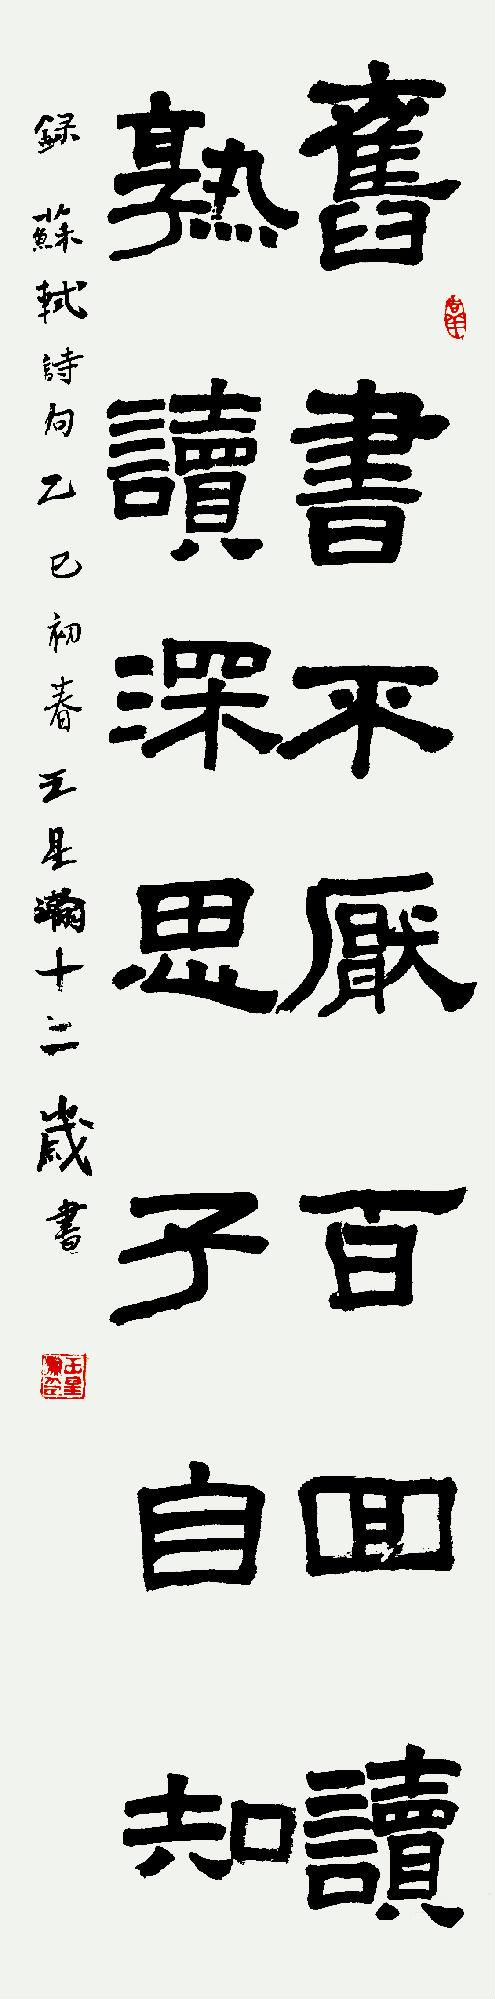 舊書不厭百回讀
熟讀深思子自知
録蘇軾詩句乙巳初春王星瀚十二歲書